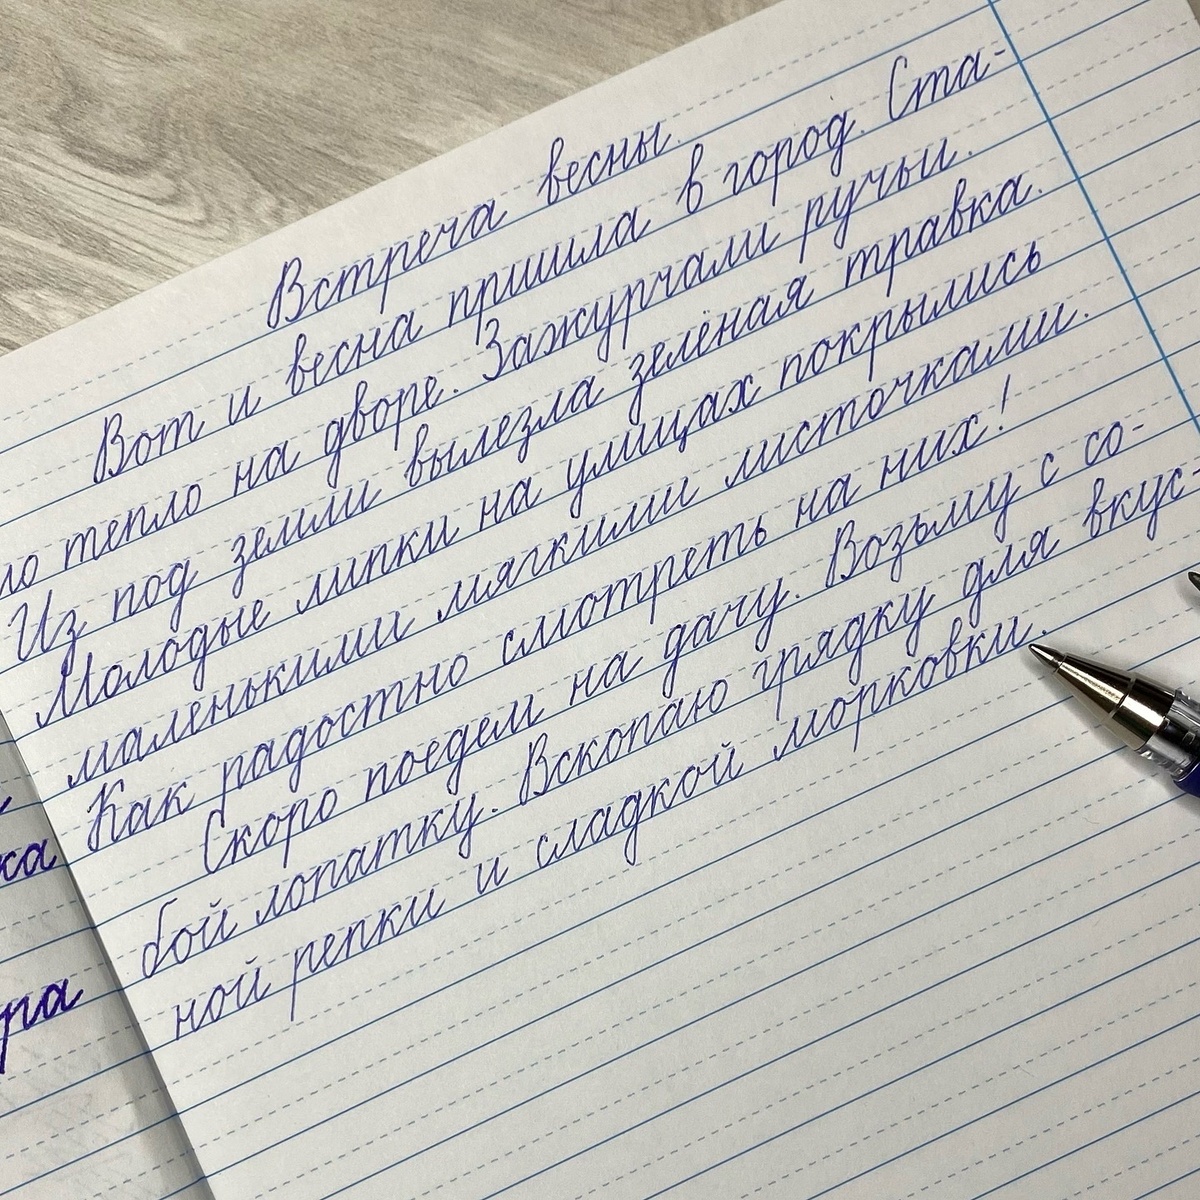 Встреча весны.
Вот и весна пришла в город. Ста-
ло тепло на дворе. Зажурчали ручьи.
Из под земли вылезла зелёная травка.
Молодые липки на улицах покрылись
маленькими мягкими листочками.
Как радостно смотреть на них!
Скоро поедем на дачу. Возьму с со-
бой лопатку. Вскопаю грядку для вкус-
ной репки и сладкой морковки.